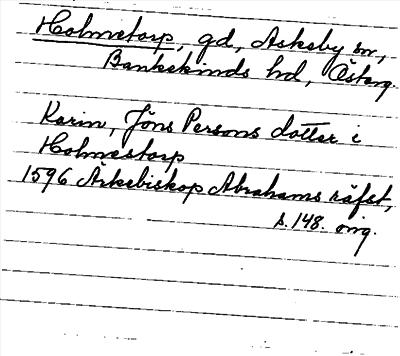 Holmetorp, gd, Askeby sn,
Bankekinds hd, Österg.
Karin, Jöns Persons dotter i
Holmestorp
1596 Ärkebiskop Abrahams räfst,
s. 148. orig.